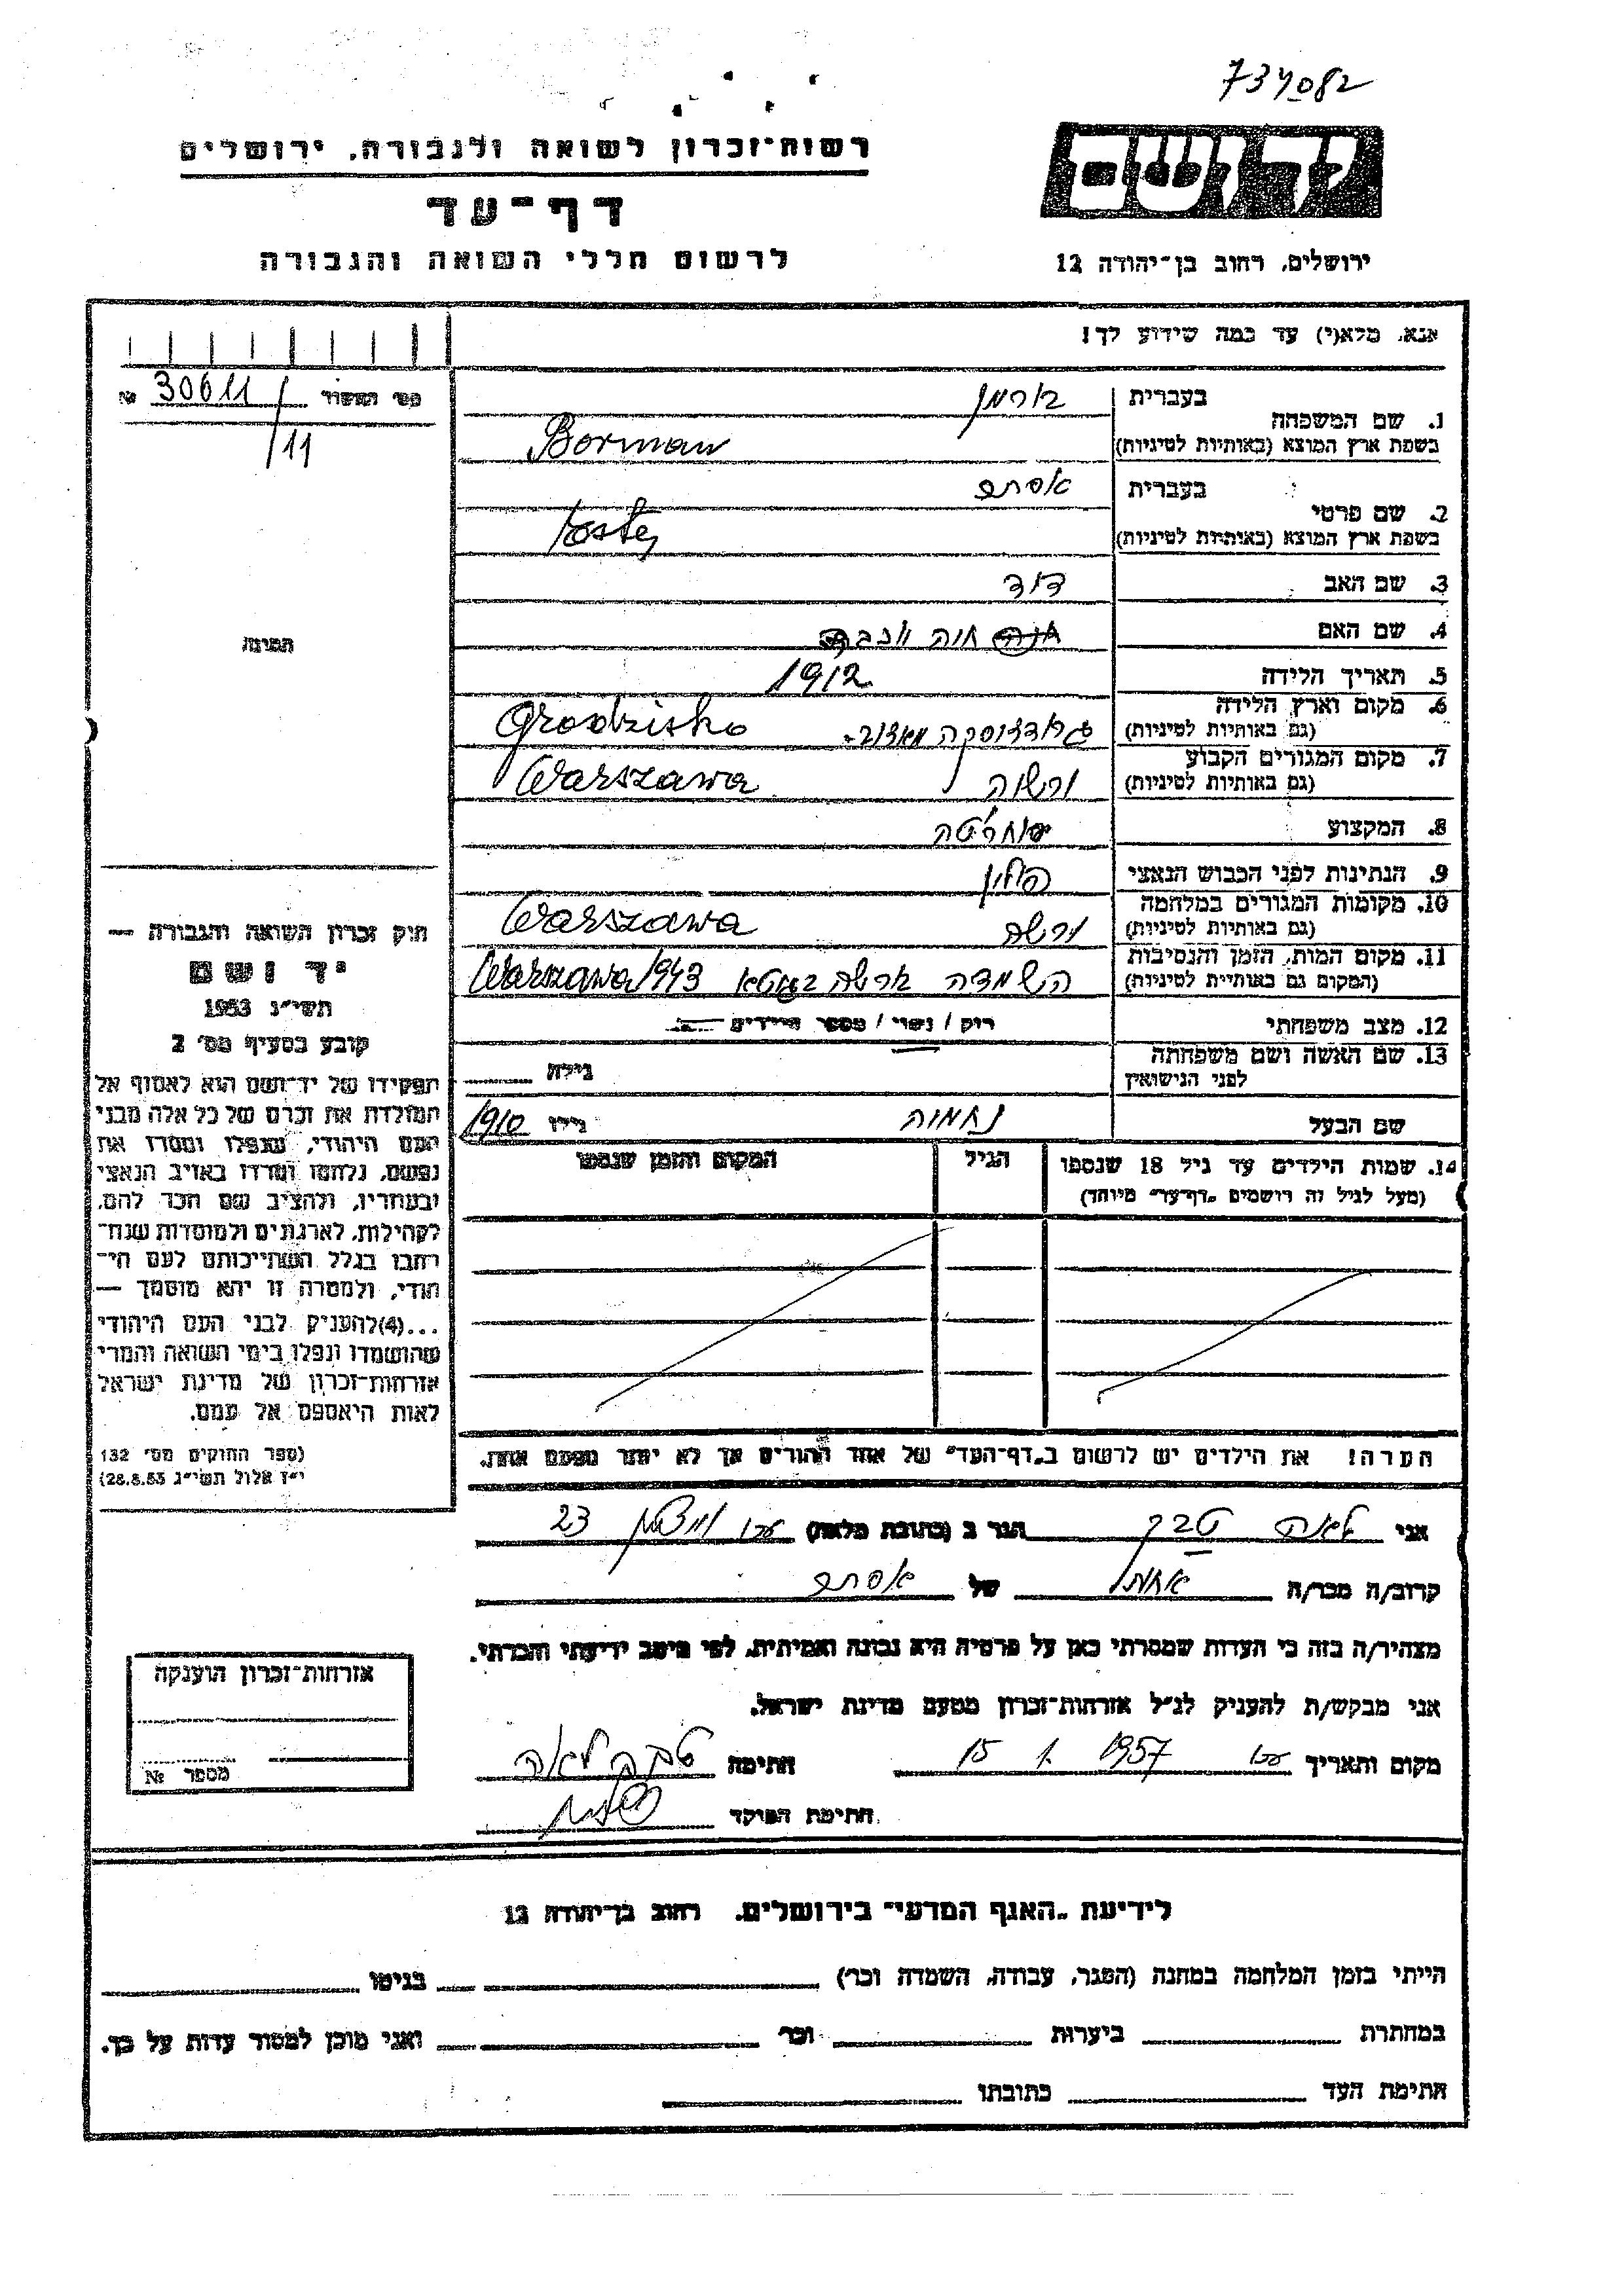 734082
רשות־זכרון לשואה ולגבורה, ירושלים
דף־עד
לרשום חללי השואה והגבורה
ידושם
ירושלים, רחוב בן־יהודה 12
אנא, מלא(י) עד כמה שידוע לך!
מס׳ השאלון 30611 №
/11
1. שם המשפחה
בעברית בורמן
בשפת ארץ המוצא (באותיות לטיניות) Borman
2. שם פרטי
בעברית אסתר
בשפת ארץ המוצא (באותיות לטיניות)
3. שם האב דוד
4. שם האם חוה
5. תאריך הלידה 1912
6. מקום וארץ הלידה
(גם באותיות לטיניות) Grodzisko
7. מקום המגורים הקבוע
(גם באותיות לטיניות) ורשה Warszawa
8. המקצוע
9. הנתינות לפני הכבוש הנאצי פולין
10. מקומות המגורים במלחמה
(גם באותיות לטיניות) ורשה Warszawa
11. מקום המות, הזמן והנסיבות
(המקום גם באותיית לטיניות) השמדה Warszawa 1943
12. מצב משפחתי רוק / נשוי / מספר הילדים
13. שם האשה ושם משפחתה
לפני הנישואין גילה
שם הבעל נחמיה גילו 1910
14. שמות הילדים עד גיל 18 שנספו הגיל המקום והזמן שנספו
(מעל לגיל זה רושמים „דף־עד״ מיוחד)
הערה! את הילדים יש לרשום ב„דף־העד״ של אחד ההורים אך לא יותר מפעם אחת.
תמונה
חוק זכרון השואה והגבורה —
יד ושם
תשי״ג 1953
קובע בסעיף מס׳ 2
תפקידו של יד־ושם הוא לאסוף אל
המולדת את זכרם של כל אלה מבני
העם היהודי, שנפלו ומסרו את
נפשם, נלחמו ומרדו באויב הנאצי
ובעוזריו, ולהציב שם וזכר להם,
לקהילות, לארגונים ולמוסדות שנח־
רבו בגלל השתייכותם לעם הי־
הודי, ולמטרה זו יהא מוסמך —
...(4)להעניק לבני העם היהודי
שהושמדו ונפלו בימי השואה והמרי
אזרחות־זכרון של מדינת ישראל
לאות היאספם אל עמם.
(ספר החוקים מס׳ 132
י״ז אלול תשי״ג 28.8.53)
אני לאה הגר ב (כתובת מלאה) 23
קרוב/ה מכר/ה אחות של אסתר
מצהיר/ה בזה כי העדות שמסרתי כאן על פרטיה היא נכונה ואמיתית, לפי מיטב ידיעתי והכרתי.
אני מבקש/ת להעניק לנ״ל אזרחות־זכרון מטעם מדינת ישראל.
מקום ותאריך 15 1. 1957 חתימה לאה
חתימת הפוקד
אזרחות־זכרון הוענקה
מספר №
לידיעת „האגף המדעי״ בירושלים, רחוב בן־יהודה 12
הייתי בזמן המלחמה במחנה (הסגר, עבודה, השמדה וכו׳) בגיטו
במחתרת ביערות וכו׳ ואני מוכן למסור עדות על כך.
חתימת העד כתובתו